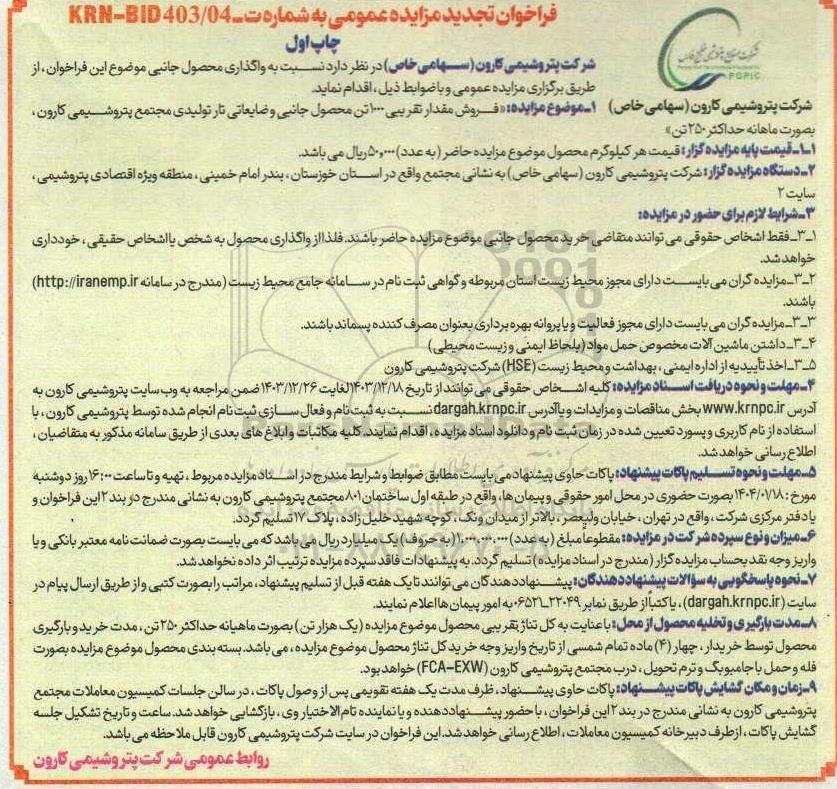 فراخوان تجدید مزایده عمومی به شماره ت-KRN-BID 403/04
چاپ اول
شرکت صنایع پتروشیمی خلیج فارس
PGPIC
شرکت پتروشیمی کارون (سهامی خاص)
شرکت پتروشیمی کارون (سهامی خاص) در نظر دارد نسبت به واگذاری محصول جانبی موضوع این فراخوان، از
طریق برگزاری مزایده عمومی و با ضوابط ذیل، اقدام نماید.
۱-موضوع مزایده: «فروش مقدار تقریبی ۱۰۰۰ تن محصول جانبی و ضایعاتی تار تولیدی مجتمع پتروشیمی کارون،
بصورت ماهانه حداکثر ۲۵۰ تن»
۱-۱-قیمت پایه مزایده گزار: قیمت هر کیلوگرم محصول موضوع مزایده حاضر (به عدد) ۵۰,۰۰۰ ریال می باشد.
۲-دستگاه مزایده گزار: شرکت پتروشیمی کارون (سهامی خاص) به نشانی مجتمع واقع در استان خوزستان، بندر امام خمینی، منطقه ویژه اقتصادی پتروشیمی،
سایت ۲
۳-شرایط لازم برای حضور در مزایده:
۱-۳-فقط اشخاص حقوقی می توانند متقاضی خرید محصول جانبی موضوع مزایده حاضر باشند. فلذا از واگذاری محصول به شخص یا اشخاص حقیقی، خودداری
خواهد شد.
۲-۳-مزایده گران می بایست دارای مجوز محیط زیست استان مربوطه و گواهی ثبت نام در سامانه جامع محیط زیست (مندرج در سامانه http://iranemp.ir)
باشند.
۳-۳-مزایده گران می بایست دارای مجوز فعالیت و یا پروانه بهره برداری بعنوان مصرف کننده پسماند باشند.
۴-۳-داشتن ماشین آلات مخصوص حمل مواد (بلحاظ ایمنی و زیست محیطی)
۵-۳-اخذ تأییدیه از اداره ایمنی، بهداشت و محیط زیست (HSE) شرکت پتروشیمی کارون
۴-مهلت و نحوه دریافت اسناد مزایده: کلیه اشخاص حقوقی می توانند از تاریخ ۱۴۰۳/۱۲/۱۸ لغایت ۱۴۰۳/۱۲/۲۶ ضمن مراجعه به وب سایت پتروشیمی کارون به
آدرس www.krnpc.ir بخش مناقصات و مزایدات و یا آدرس dargah.krnpc.ir نسبت به ثبت نام و فعال سازی ثبت نام انجام شده توسط پتروشیمی کارون، با
استفاده از نام کاربری و پسورد تعیین شده در زمان ثبت نام و دانلود اسناد مزایده، اقدام نمایند. کلیه مکاتبات و ابلاغ های بعدی از طریق سامانه مذکور به متقاضیان،
اطلاع رسانی خواهد شد.
۵-مهلت و نحوه تسلیم پاکات پیشنهاد: پاکات حاوی پیشنهاد می بایست مطابق ضوابط و شرایط مندرج در اسناد مزایده مربوط، تهیه و تا ساعت ۱۶:۰۰ روز دوشنبه
مورخ: ۱۴۰۴/۰۱/۱۸ بصورت حضوری در محل امور حقوقی و پیمان ها، واقع در طبقه اول ساختمان ۸۰۱ مجتمع پتروشیمی کارون به نشانی مندرج در بند ۲ این فراخوان و
یا دفتر مرکزی شرکت، واقع در تهران، خیابان ولیعصر، بالاتر از میدان ونک، کوچه شهید خلیل زاده، پلاک ۱۷ تسلیم گردد.
۶-میزان و نوع سپرده شرکت در مزایده: مقطوعاً مبلغ (به عدد) ۱,۰۰۰,۰۰۰,۰۰۰ (به حروف) یک میلیارد ریال می باشد که می بایست بصورت ضمانت نامه معتبر بانکی و یا
واریز وجه نقد بحساب مزایده گزار (مندرج در اسناد مزایده) تسلیم گردد. به پیشنهادات فاقد سپرده مزایده ترتیب اثر داده نخواهد شد.
۷-نحوه پاسخگویی به سؤالات پیشنهاد دهندگان: پیشنهاد دهندگان می توانند تا یک هفته قبل از تسلیم پیشنهاد، مراتب را بصورت کتبی و از طریق ارسال پیام در
سایت (dargah.krnpc.ir)، یا کتباً از طریق نمابر ۲۲۰۴۹-۰۶۵۲۱ به امور پیمان ها اعلام نمایند.
۸-مدت بارگیری و تخلیه محصول از محل: با عنایت به کل تناژ تقریبی محصول موضوع مزایده (یک هزار تن) بصورت ماهیانه حداکثر ۲۵۰ تن، مدت خرید و بارگیری
محصول توسط خریدار، چهار (۴) ماده تمام شمسی از تاریخ واریز وجه خرید کل تناژ محصول موضوع مزایده، می باشد. بسته بندی محصول موضوع مزایده بصورت
فله و حمل با جامبوبگ و ترم تحویل، درب مجتمع پتروشیمی کارون (FCA-EXW) خواهد بود.
۹-زمان و مکان گشایش پاکات پیشنهاد: پاکات حاوی پیشنهاد، ظرف مدت یک هفته تقویمی پس از وصول پاکات، در سالن جلسات کمیسیون معاملات مجتمع
پتروشیمی کارون به نشانی مندرج در بند ۲ این فراخوان، با حضور پیشنهاد دهنده و یا نماینده تام الاختیار وی، بازگشایی خواهد شد. ساعت و تاریخ تشکیل جلسه
گشایش پاکات، از طرف دبیرخانه کمیسیون معاملات، اطلاع رسانی خواهد شد. این فراخوان در سایت شرکت پتروشیمی کارون قابل ملاحظه می باشد.
روابط عمومی شرکت پتروشیمی کارون